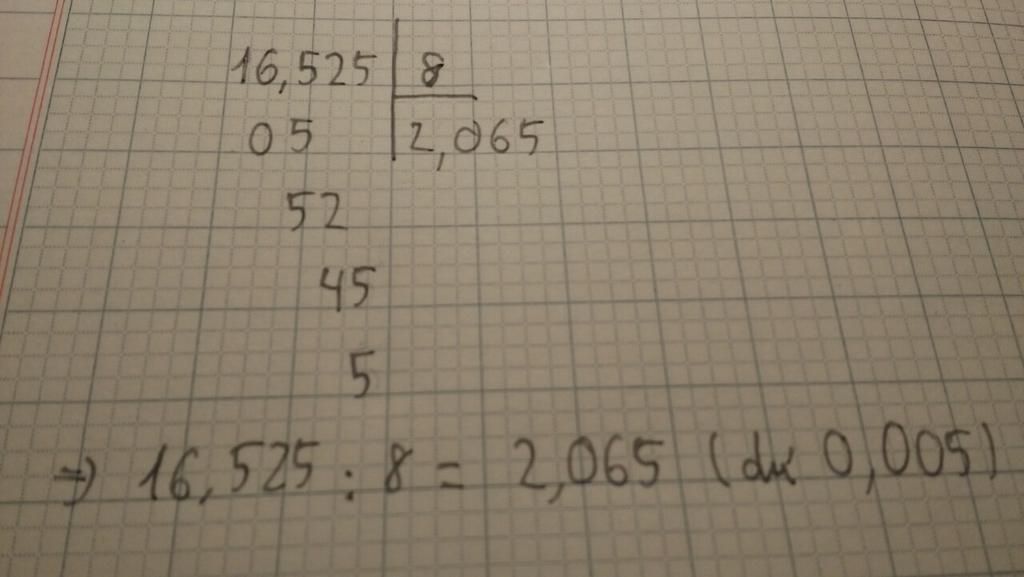 16,525 8
05 2,065
52
45
5
⇒ 16,525 : 8 = 2,065 (dư 0,005)